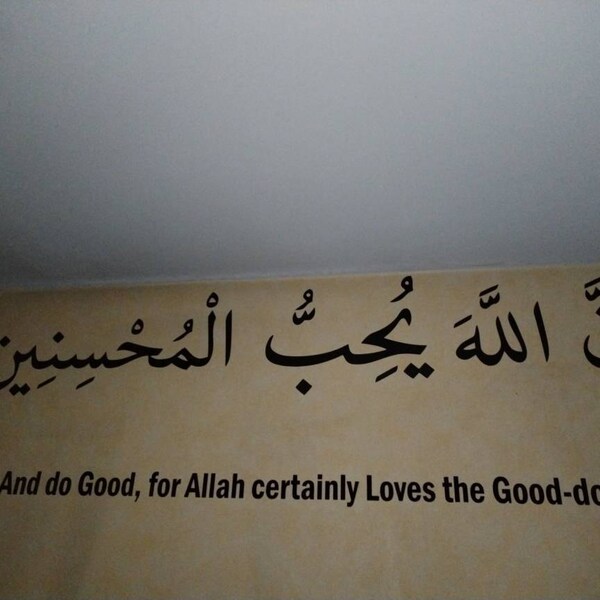 اللَّهَ يُحِبُّ الْمُحْسِنِين
And do Good, for Allah certainly Loves the Good-do